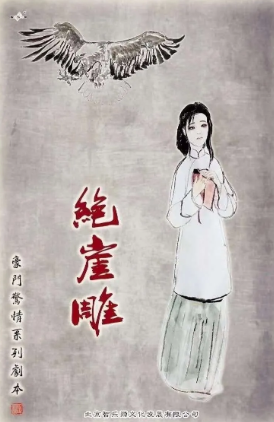 絕崖雕
豪門驚情系列劇本
北京智乐文化发展有限公司